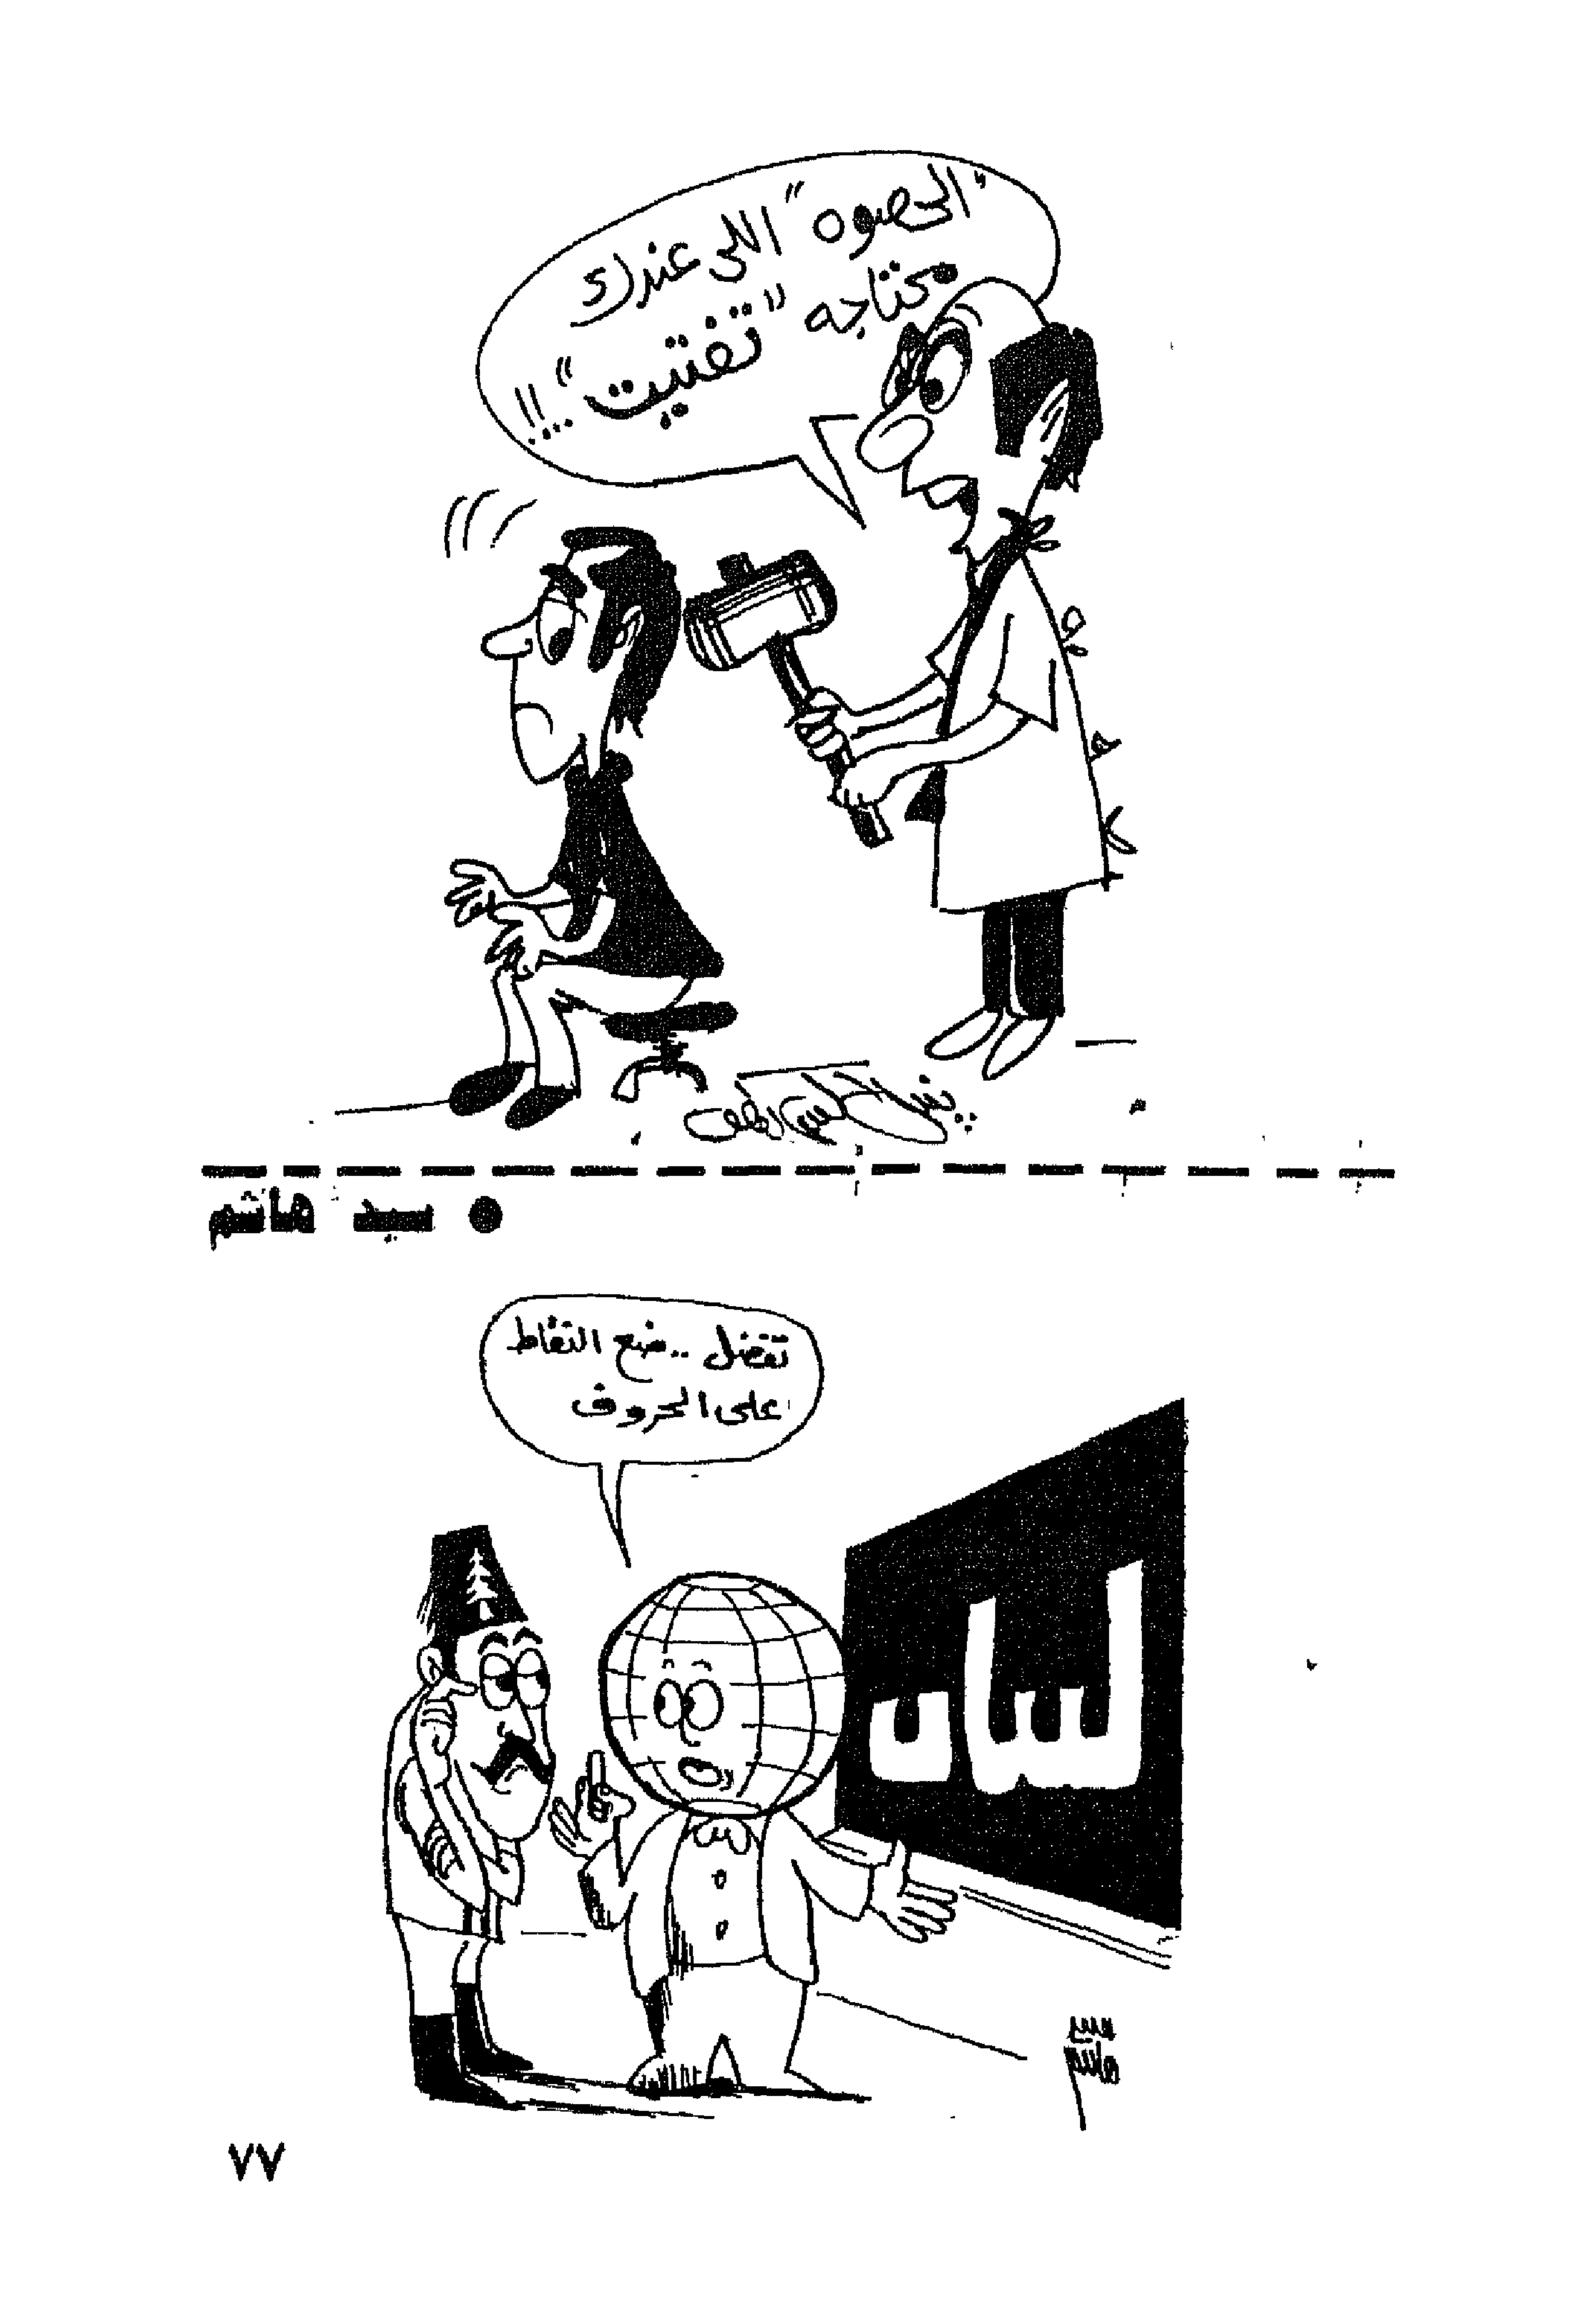 "الحصوه" اللى عندك
محتاجه "تفتيت"..!!
● سيد هاشم
تفضل .. ضع النقاط
على الحروف
سيد
هاشم
٧٧